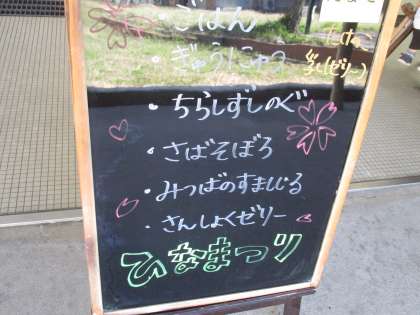 ・ごはん
・ぎゅうにゅう
・ちらしずしのぐ
・さばそぼろ
・みつばのすましじる
・さんしょくゼリー
ひなまつり